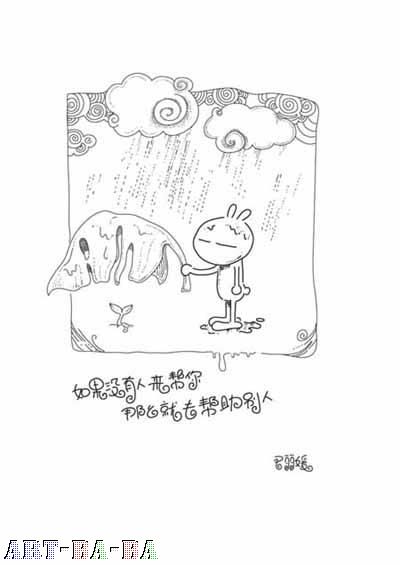 如果没有人来帮你
那么就去帮助别人
君丽媛
ART-BA-BA